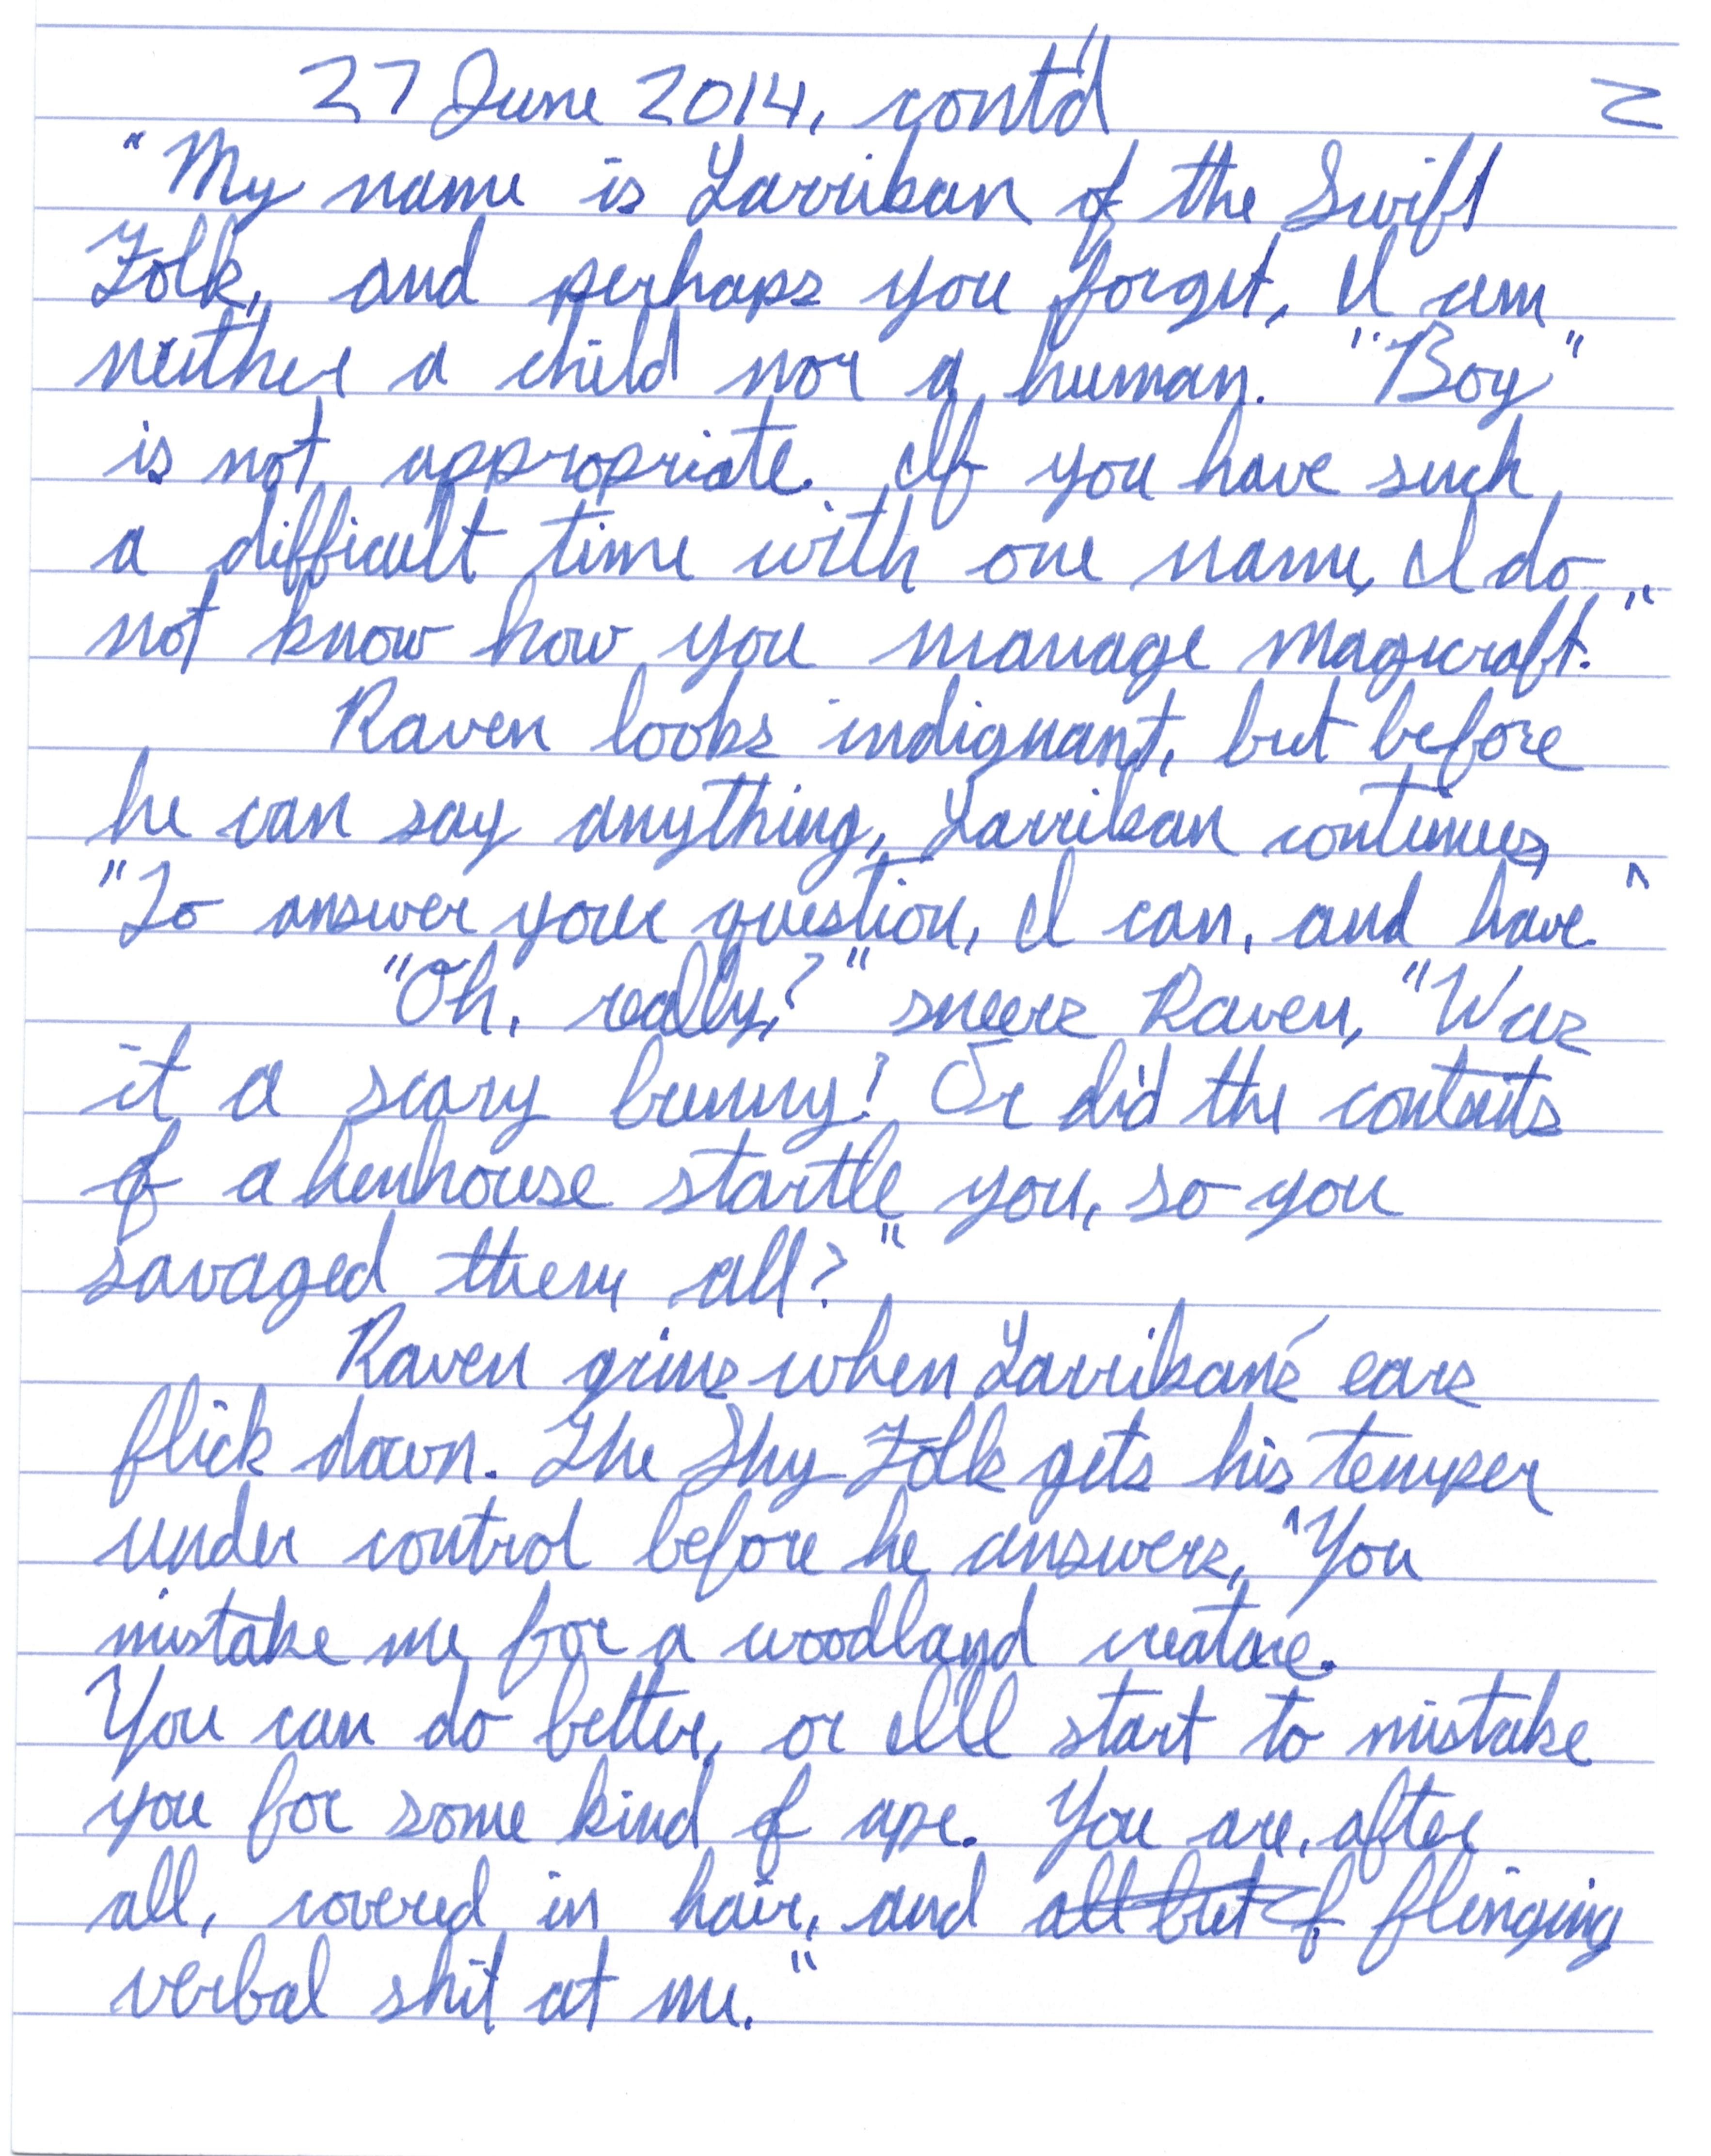 27 June 2014, cont'd 2
"My name is Larrikan of the Swift
Folk, and perhaps you forget, I am
neither a child nor a human. "Boy"
is not appropriate. If you have such
a difficult time with one name, I do
not know how you manage magicraft."
Raven looks indignant, but before
he can say anything, Larrikan continues,
"To answer your question, I can, and have."
"Oh, really?" sneers Raven, "Was
it a scary bunny? Or did the contents
of a henhouse startle you, so you
savaged them all?"
Raven grins when Larrikan's ears
flick down. The Shy Folk gets his temper
under control before he answers, "You
mistake me for a woodland creature.
You can do better, or I'll start to mistake
you for some kind of ape. You are, after
all, covered in hair, and all but f flinging
verbal shit at me."